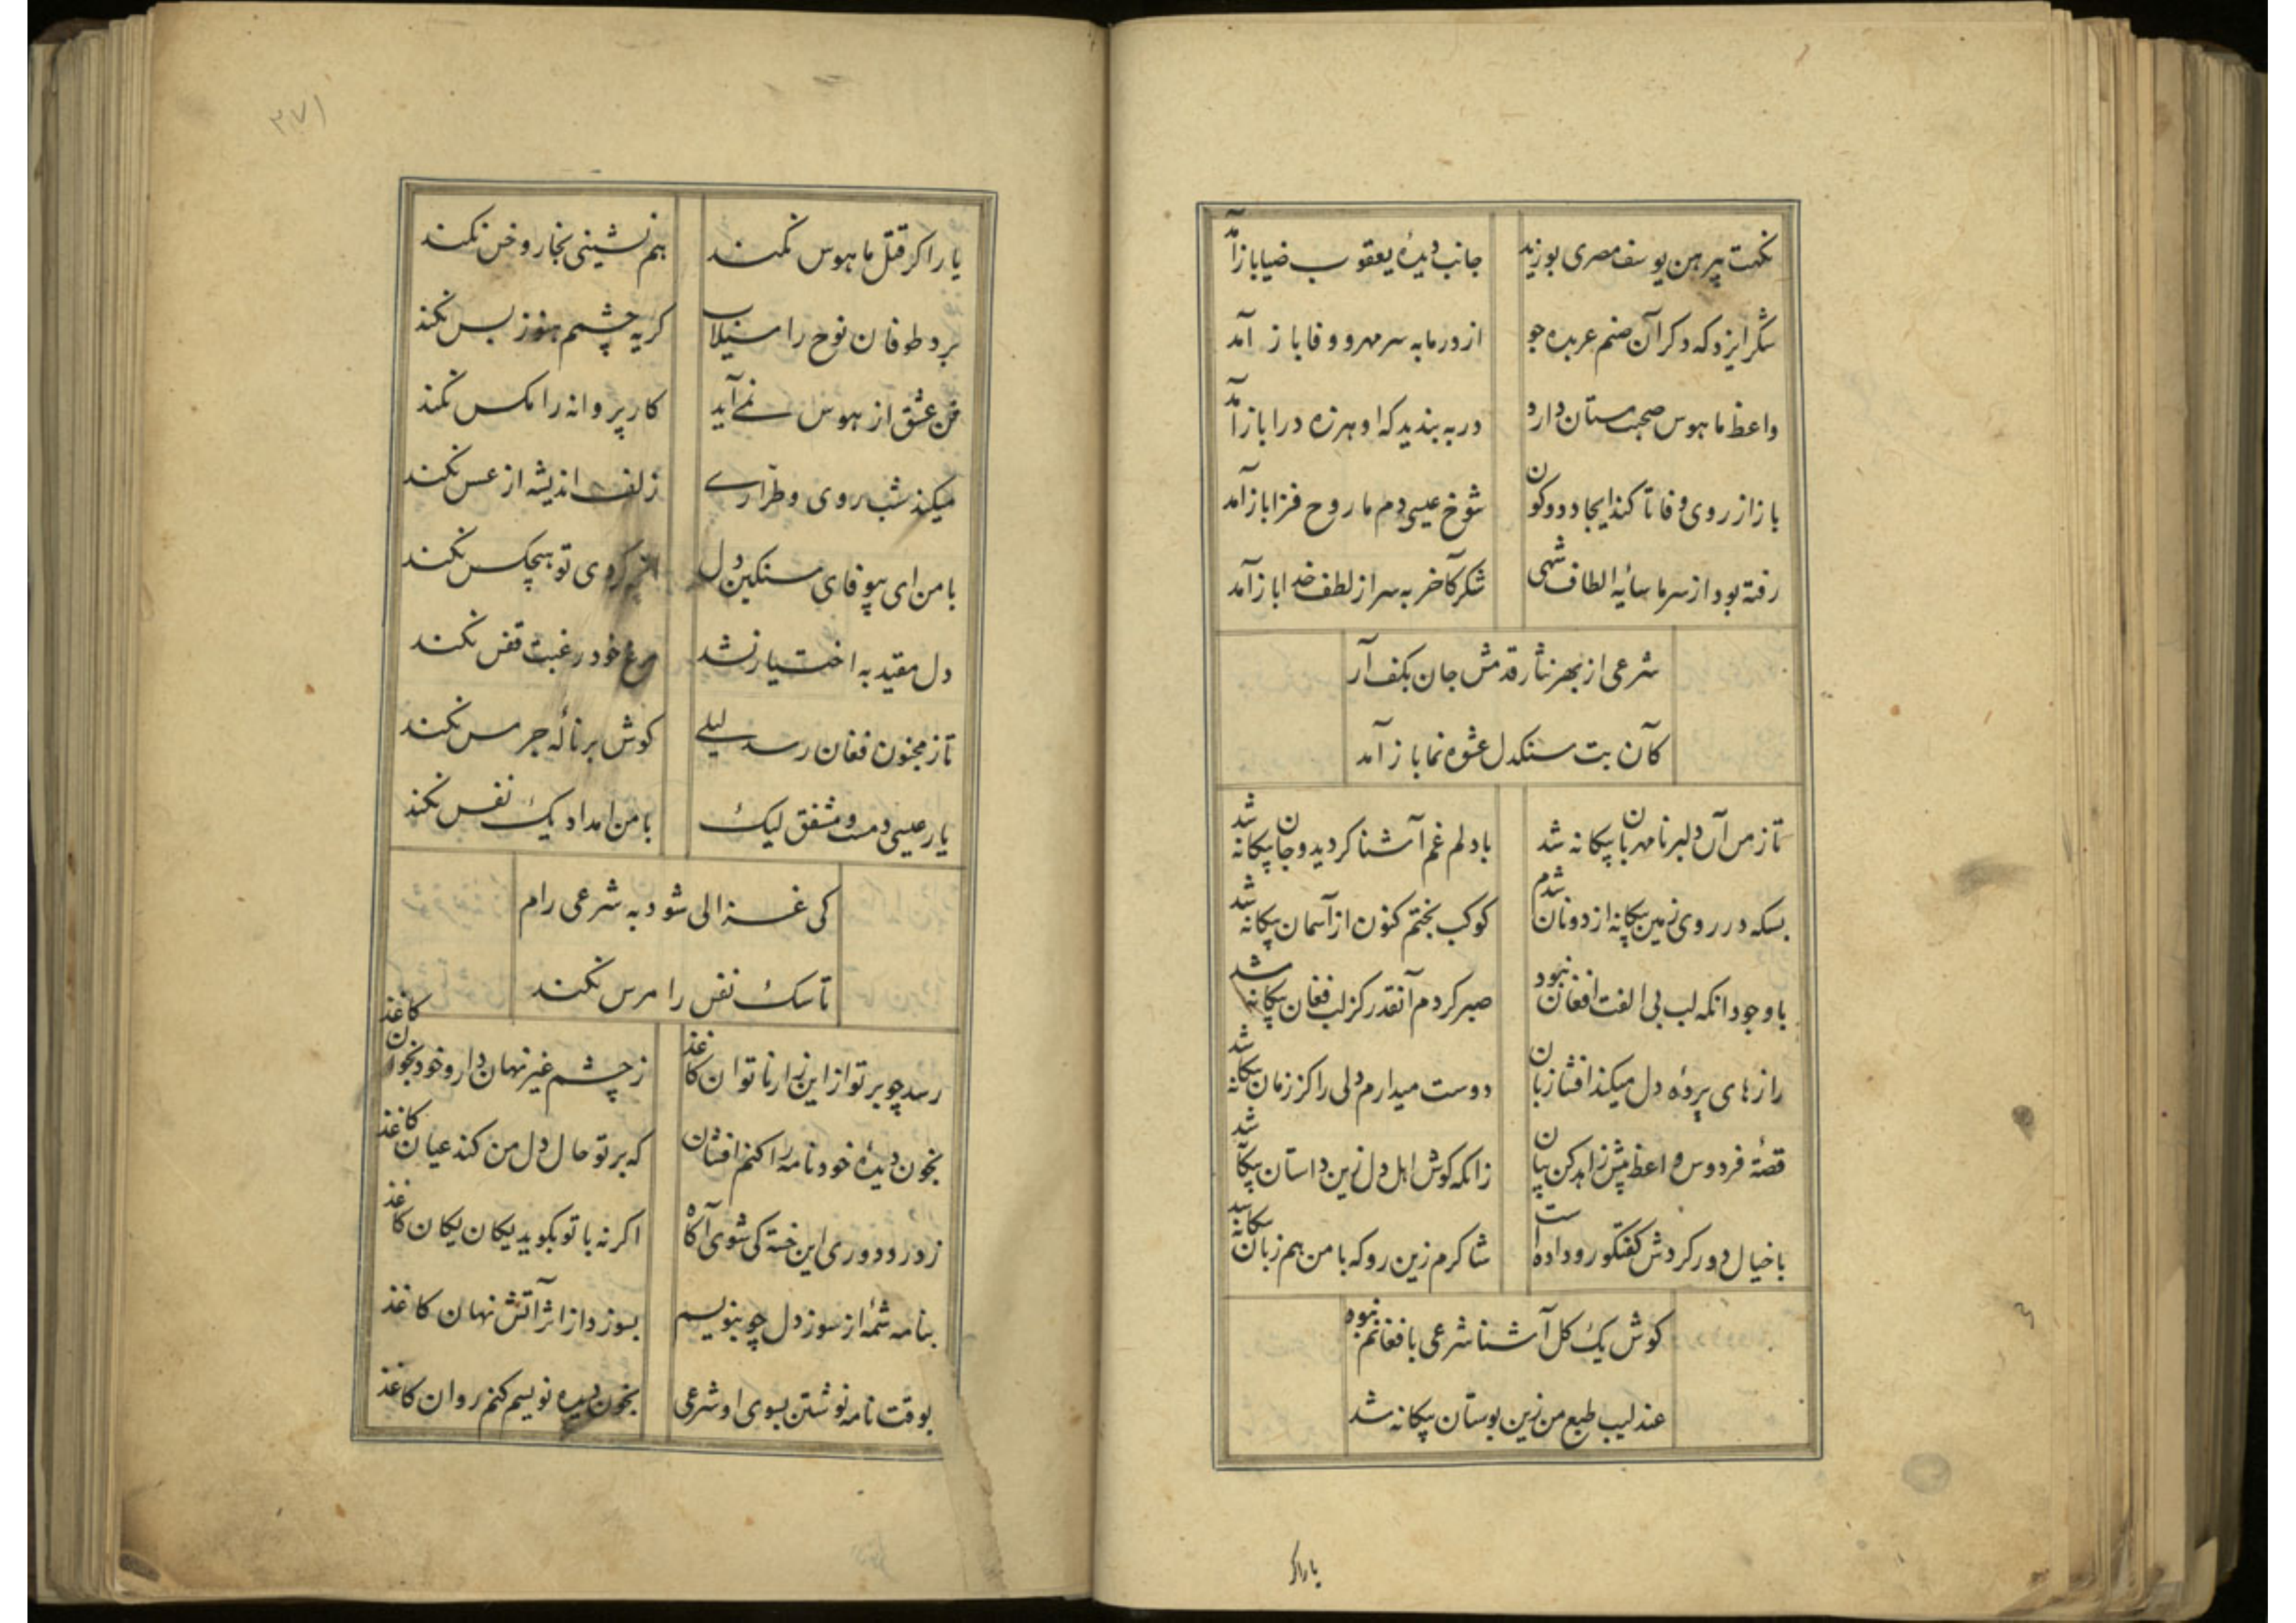 نکهت پیرهن یوسف مصری بوزید
جانب دیدهٔ یعقوب ضیا باز آمد
شکر ایزد که دکر آن صنم عربده جو
از در ما به سر مهر و وفا باز آمد
واعظ ما هوس صحبت مستان دارد
در به بندید که او هرزه درا باز آمد
باز از روی وفا تا کند ایجاد دو کون
شوخ عیسی دم ما روح فزا باز آمد
رفته بود از سر ما سایهٔ الطاف شهی
شکر کآخر به سر از لطف خدا باز آمد
شرعی از بهر نثار قدمش جان بکف آر
کآن بت سنکدل عشوه نما باز آمد
تا ز من آن دلبر نامهربان بیکانه شد
با دلم غم آشنا کردید و جان بیکانه شد
بسکه در روی زمین بیکانه از دونان شدم
کوکب بختم کنون از آسمان بیکانه شد
باوجود انکه لب بی الفت افغان نبود
صبر کردم آنقدر کز لب فغان بیکانه شد
رازهای پردهٔ دل میکند افشا زبان
دوست میدارم دلی را کز زبان بیکانه شد
قصهٔ فردوس واعظ پیش زاهد کن بیان
زانکه کوش اهل دل زین داستان بیکانه شد
با خیال دور کردش کفتکو رو داده است
شاکرم زین رو که با من هم زبان بیکانه شد
کوش یک کل آشنا شرعی بافغانم نبود
عندلیب طبع من زین بوستان بیکانه شد
یار اکر
۳۷۱
یار اکر قتل ما هوس نکند
هم نشینی بخار و خس نکند
برد طوفان نوح را سیلاب
کریه چشم هنوز بس نکند
فن عشق از هوس نمے آید
کار پروانه را مکس نکند
میکند شب روی و طرارے
زلف اندیشه از عسس نکند
با من ای بیوفای سنکین دل
انچه کردی تو هیچکس نکند
دل مقید به اختیار نشد
مرغ خود رغبت قفس نکند
تا ز مجنون فغان رسد لیلے
کوش بر نالهٔ جرس نکند
یار عیسی دمست و مشفق لیک
با من امداد یک نفس نکند
کی غزالی شود به شرعی رام
تا سک نفس را مرس نکند
رسد چو بر تو از این زار ناتوان کاغذ
ز چشم غیر نهان دار و خود بخوان کاغذ
بخون دیدهٔ خود نامه را کنم افشان
که بر تو حال دل من کند عیان کاغذ
ز درد دوری این خسته کی شوی آکاه
اکر نه با تو بکوید یکان یکان کاغذ
بنامه شمهٔ از سوز دل چو بنویسم
بسوزد از اثر آتش نهان کاغذ
بوقت نامه نوشتن بسوی او شرعی
بخون دیده نویسم کنم روان کاغذ